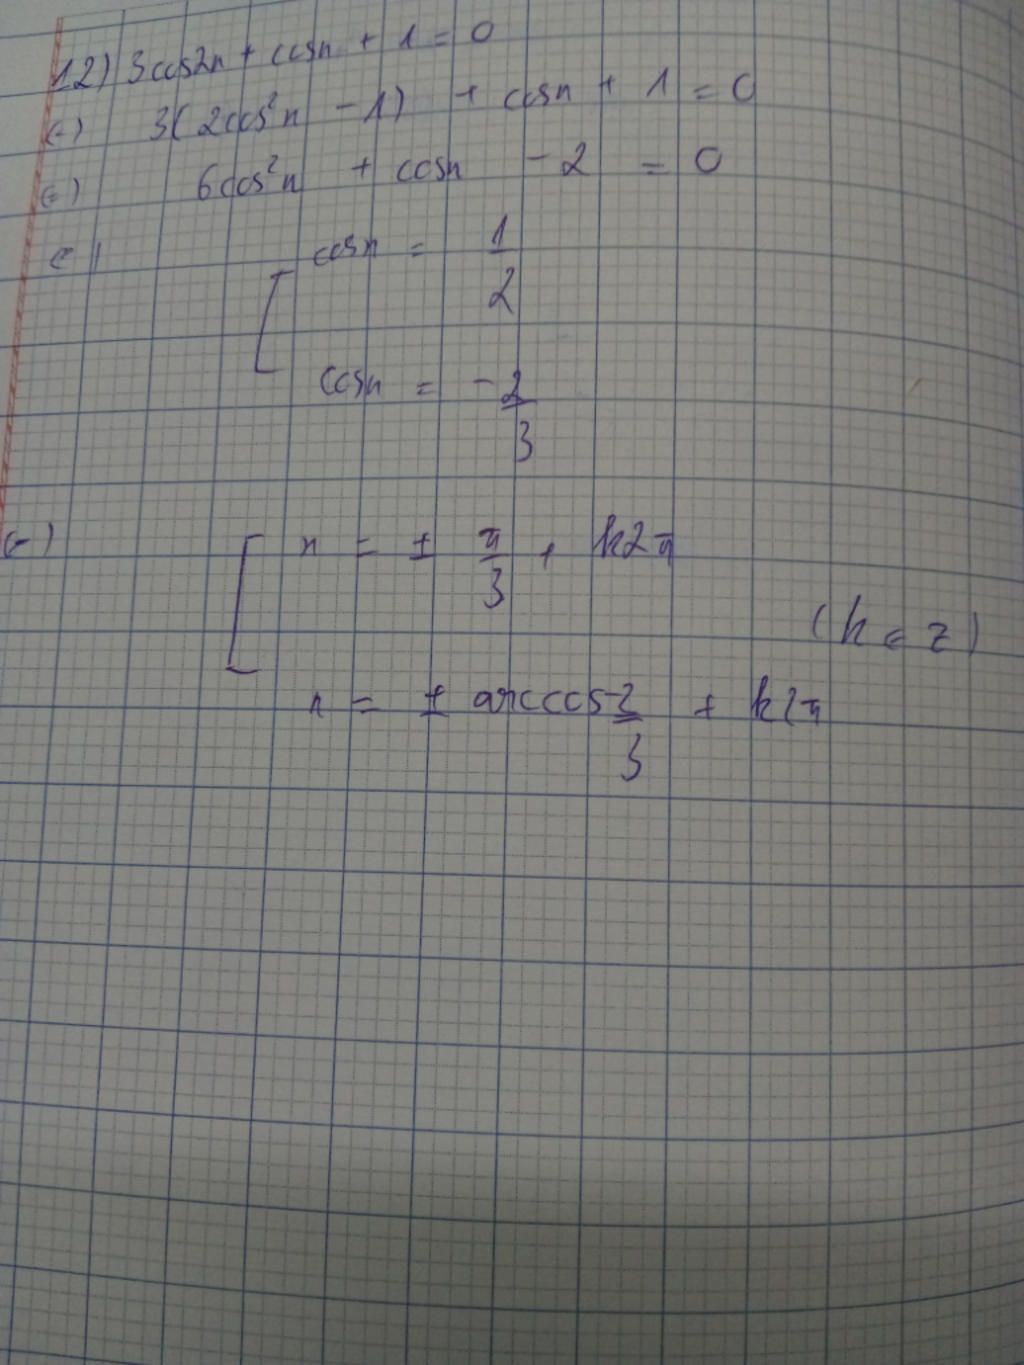 12) 3cos2x + cosx + 1 = 0
<=> 3(2cos²x - 1) + cosx + 1 = 0
<=> 6cos²x + cosx - 2 = 0
<=> [ cosx = 1/2
cosx = -2/3
<=> [ x = ± π/3 + k2π
(k ∈ Z)
x = ± arccos -2/3 + k2π